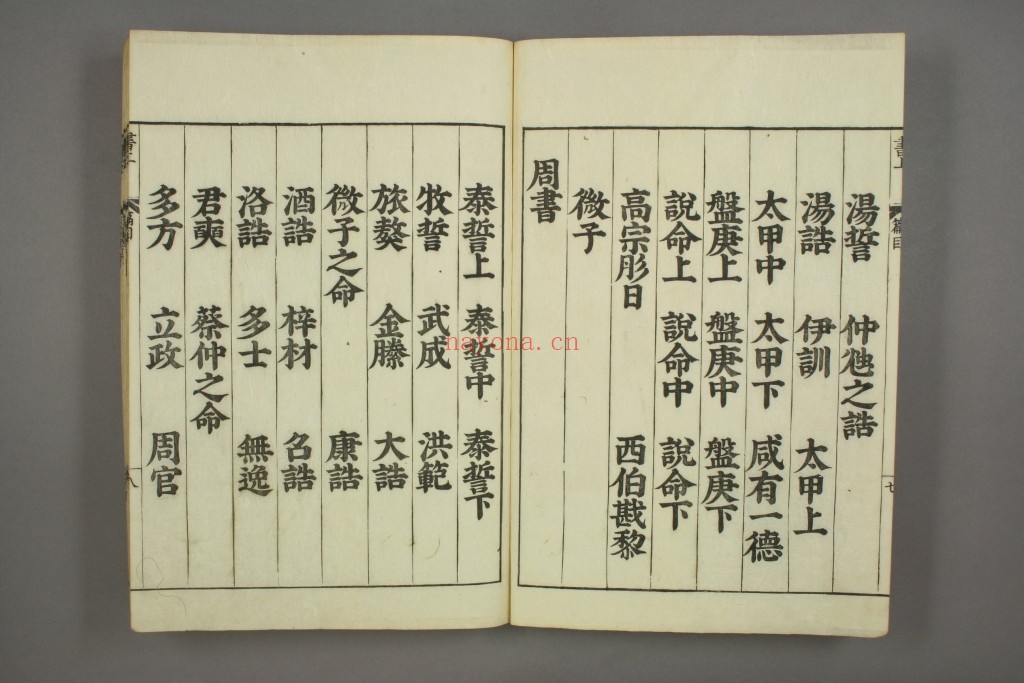 湯誓 仲虺之誥
湯誥 伊訓 太甲上
太甲中 太甲下 咸有一德
盤庚上 盤庚中 盤庚下
說命上 說命中 說命下
高宗肜日 西伯戡黎
微子
周書
泰誓上 泰誓中 泰誓下
牧誓 武成 洪範
旅獒 金縢 大誥
微子之命 康誥
酒誥 梓材 召誥
洛誥 多士 無逸
君奭 蔡仲之命
多方 立政 周官
篇目
七
八
hayona.cn